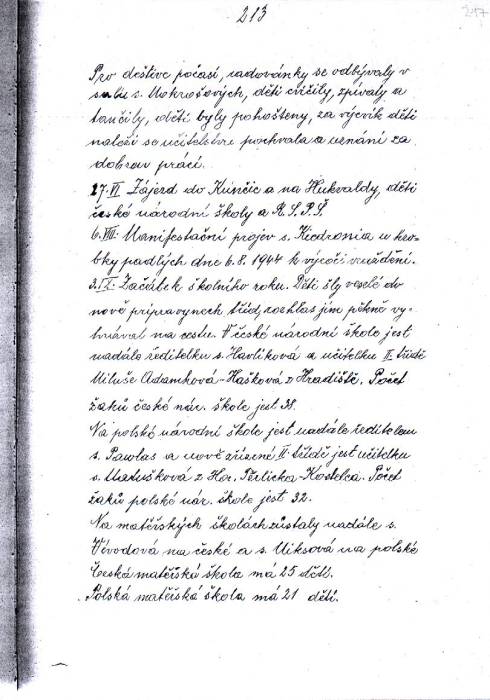 213
217
Pro deštivé počasí, radovánky se odbývaly v
salu s. Mokrošových, děti cvičily, zpívaly a
tančily, děti byly pohošteny, za výcvik dětí
naleži se učitelstvu pochvala a uznání za
dobrou práci.
27.VI Zájezd do Kunčic a na Hukvaldy, děti
české národní školy a R.S.P.Š.
6.VIII. Manifestační projev s. Kiedronia u hro-
bky padlých dne 6.8.1944 k výročí
3.IX. Začátek školního roku. Děti šly veselé do
nově připravynech tříd, rozhlas jim pěkně vy-
hrával na cestu. V české národní škole jest
nadále ředitelku s. Havlíková a učitelku II. třídě
Miluše Adamková-Hašková z Hradiště. Počet
žaků české nár. škole jest 38.
Na polské národní škole jest nadále ředitelem
s. Pawlas a nově zřízené II. třídě jest učitelku
s. Matušková z Hor. Těrlicka-Kostelca. Počet
žaků polské nár. škole jest 32.
Na matěřských školách zůstaly nadále s.
Vévodová na české a s. Uiksová na polské
Česká matěřská škola má 25 dětí.
Polská matěřská škola má 21 dětí.